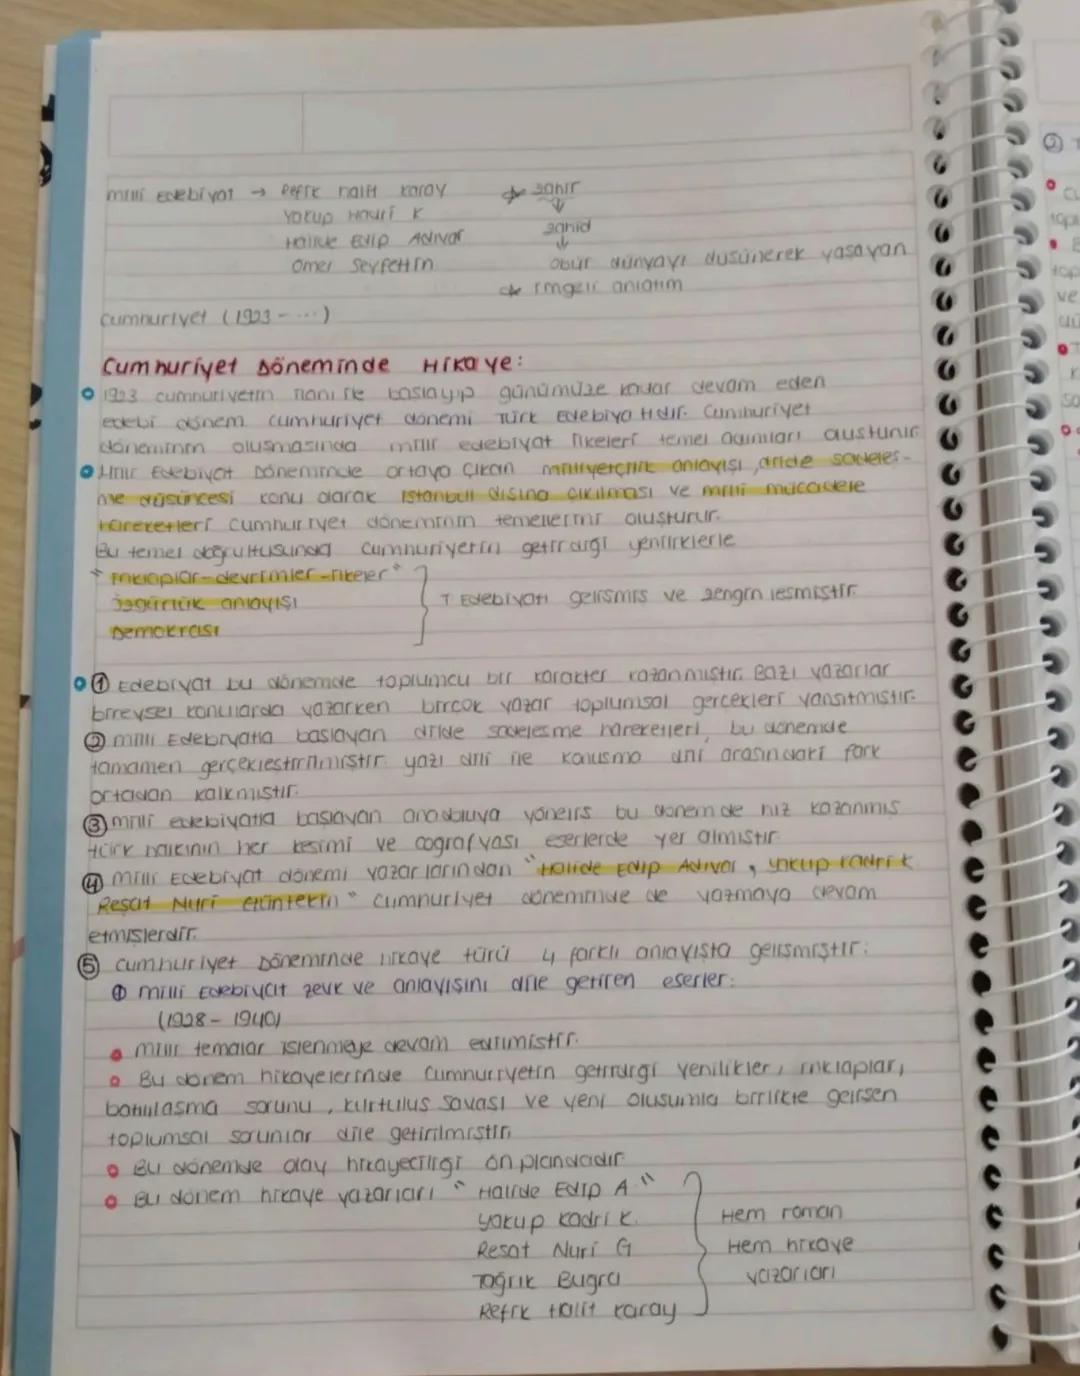 milli Edebiyat → Refik Halit Karay
Yakup Kadri K
Halide Edip Adıvar
Ömer Seyfettin
zahir
↓
zahid
↓
öbür dünyayı düşünerek yaşayan
imgeli anlatım
Cumhuriyet (1923 - ...)
Cumhuriyet Döneminde Hikaye:
1923 cumhuriyetin ilanı ile başlayıp günümüze kadar devam eden
edebi dönem cumhuriyet dönemi Türk Edebiyatıdır. Cumhuriyet
döneminin oluşmasında milli edebiyat ilkeleri temel adımları oluşturur
Milli Edebiyat Döneminde ortaya çıkan milliyetçilik anlayışı, dilde sadeleş-
me düşüncesi konu olarak İstanbul dışına çıkılması ve milli mücadele
hareketleri cumhuriyet döneminin temellerini oluşturur.
Bu temel doğrultusunda Cumhuriyetin getirdiği yeniliklerle
" inkılaplar-devrimler-ilkeler "
özgürlük anlayışı
Demokrasi
T Edebiyatı gelişmiş ve zenginleşmiştir.
① Edebiyat bu dönemde toplumcu bir karakter kazanmıştır. Bazı yazarlar
bireysel konularda yazarken birçok yazar toplumsal gerçekleri yansıtmıştır.
② milli Edebiyatla başlayan dilde sadeleşme hareketleri, bu dönemde
tamamen gerçekleştirilmiştir. yazı dili ile konuşma dili arasındaki fark
ortadan kalkmıştır.
③ milli edebiyatla başlayan anadoluya yöneliş bu dönemde hız kazanmış
türk halkının her kesimi ve coğrafyası eserlerde yer almıştır
④ milli Edebiyat dönemi yazarlarından "Halide Edip Adıvar, Yakup Kadri K
Reşat Nuri Güntekin" Cumhuriyet döneminde de yazmaya devam
etmişlerdir.
⑤ Cumhuriyet Döneminde hikaye türü 4 farklı anlayışta gelişmiştir:
① Milli Edebiyat zevk ve anlayışını dile getiren eserler:
(1928 - 1940)
milli temalar işlenmeye devam edilmiştir.
Bu dönem hikayelerinde Cumhuriyetin getirdiği yenilikler, inkılaplar,
batılılaşma sorunu, kurtuluş savaşı ve yeni oluşumla birlikte gelişen
toplumsal sorunlar dile getirilmiştir.
Bu dönemde olay hikayeciliği ön plandadır
Bu dönem hikaye yazarları " Halide Edip A "
Yakup Kadri K.
Reşat Nuri G
Tağrık Buğra
Refik Halit Karay
Hem roman
Hem hikaye
yazarları